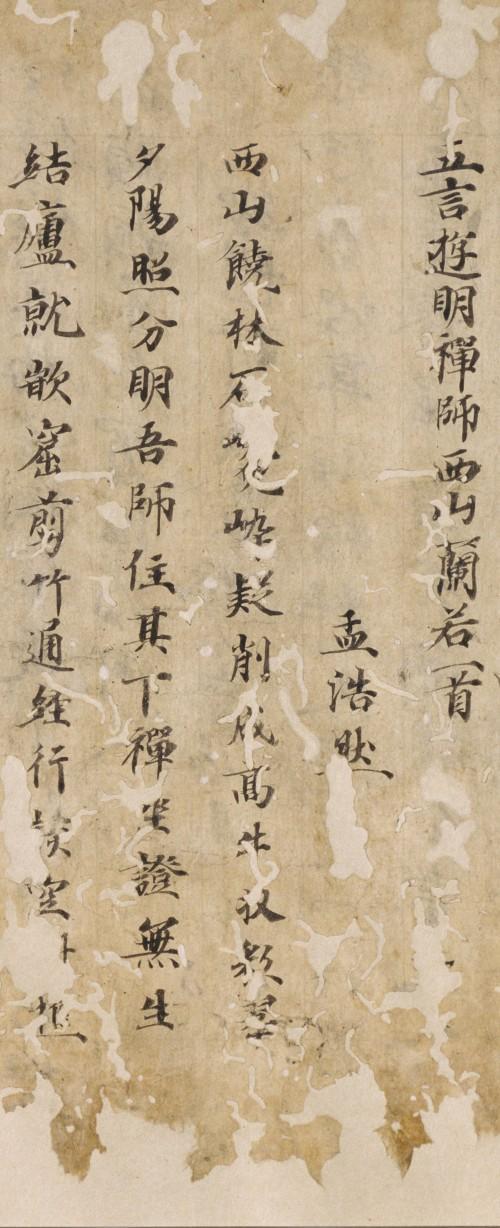 五言遊明禪師西山蘭若一首
孟浩然
西山饒林石疑削成高
夕陽照分明吾師住其下禪坐證無生
結廬就嵌窟剪竹通經行談空